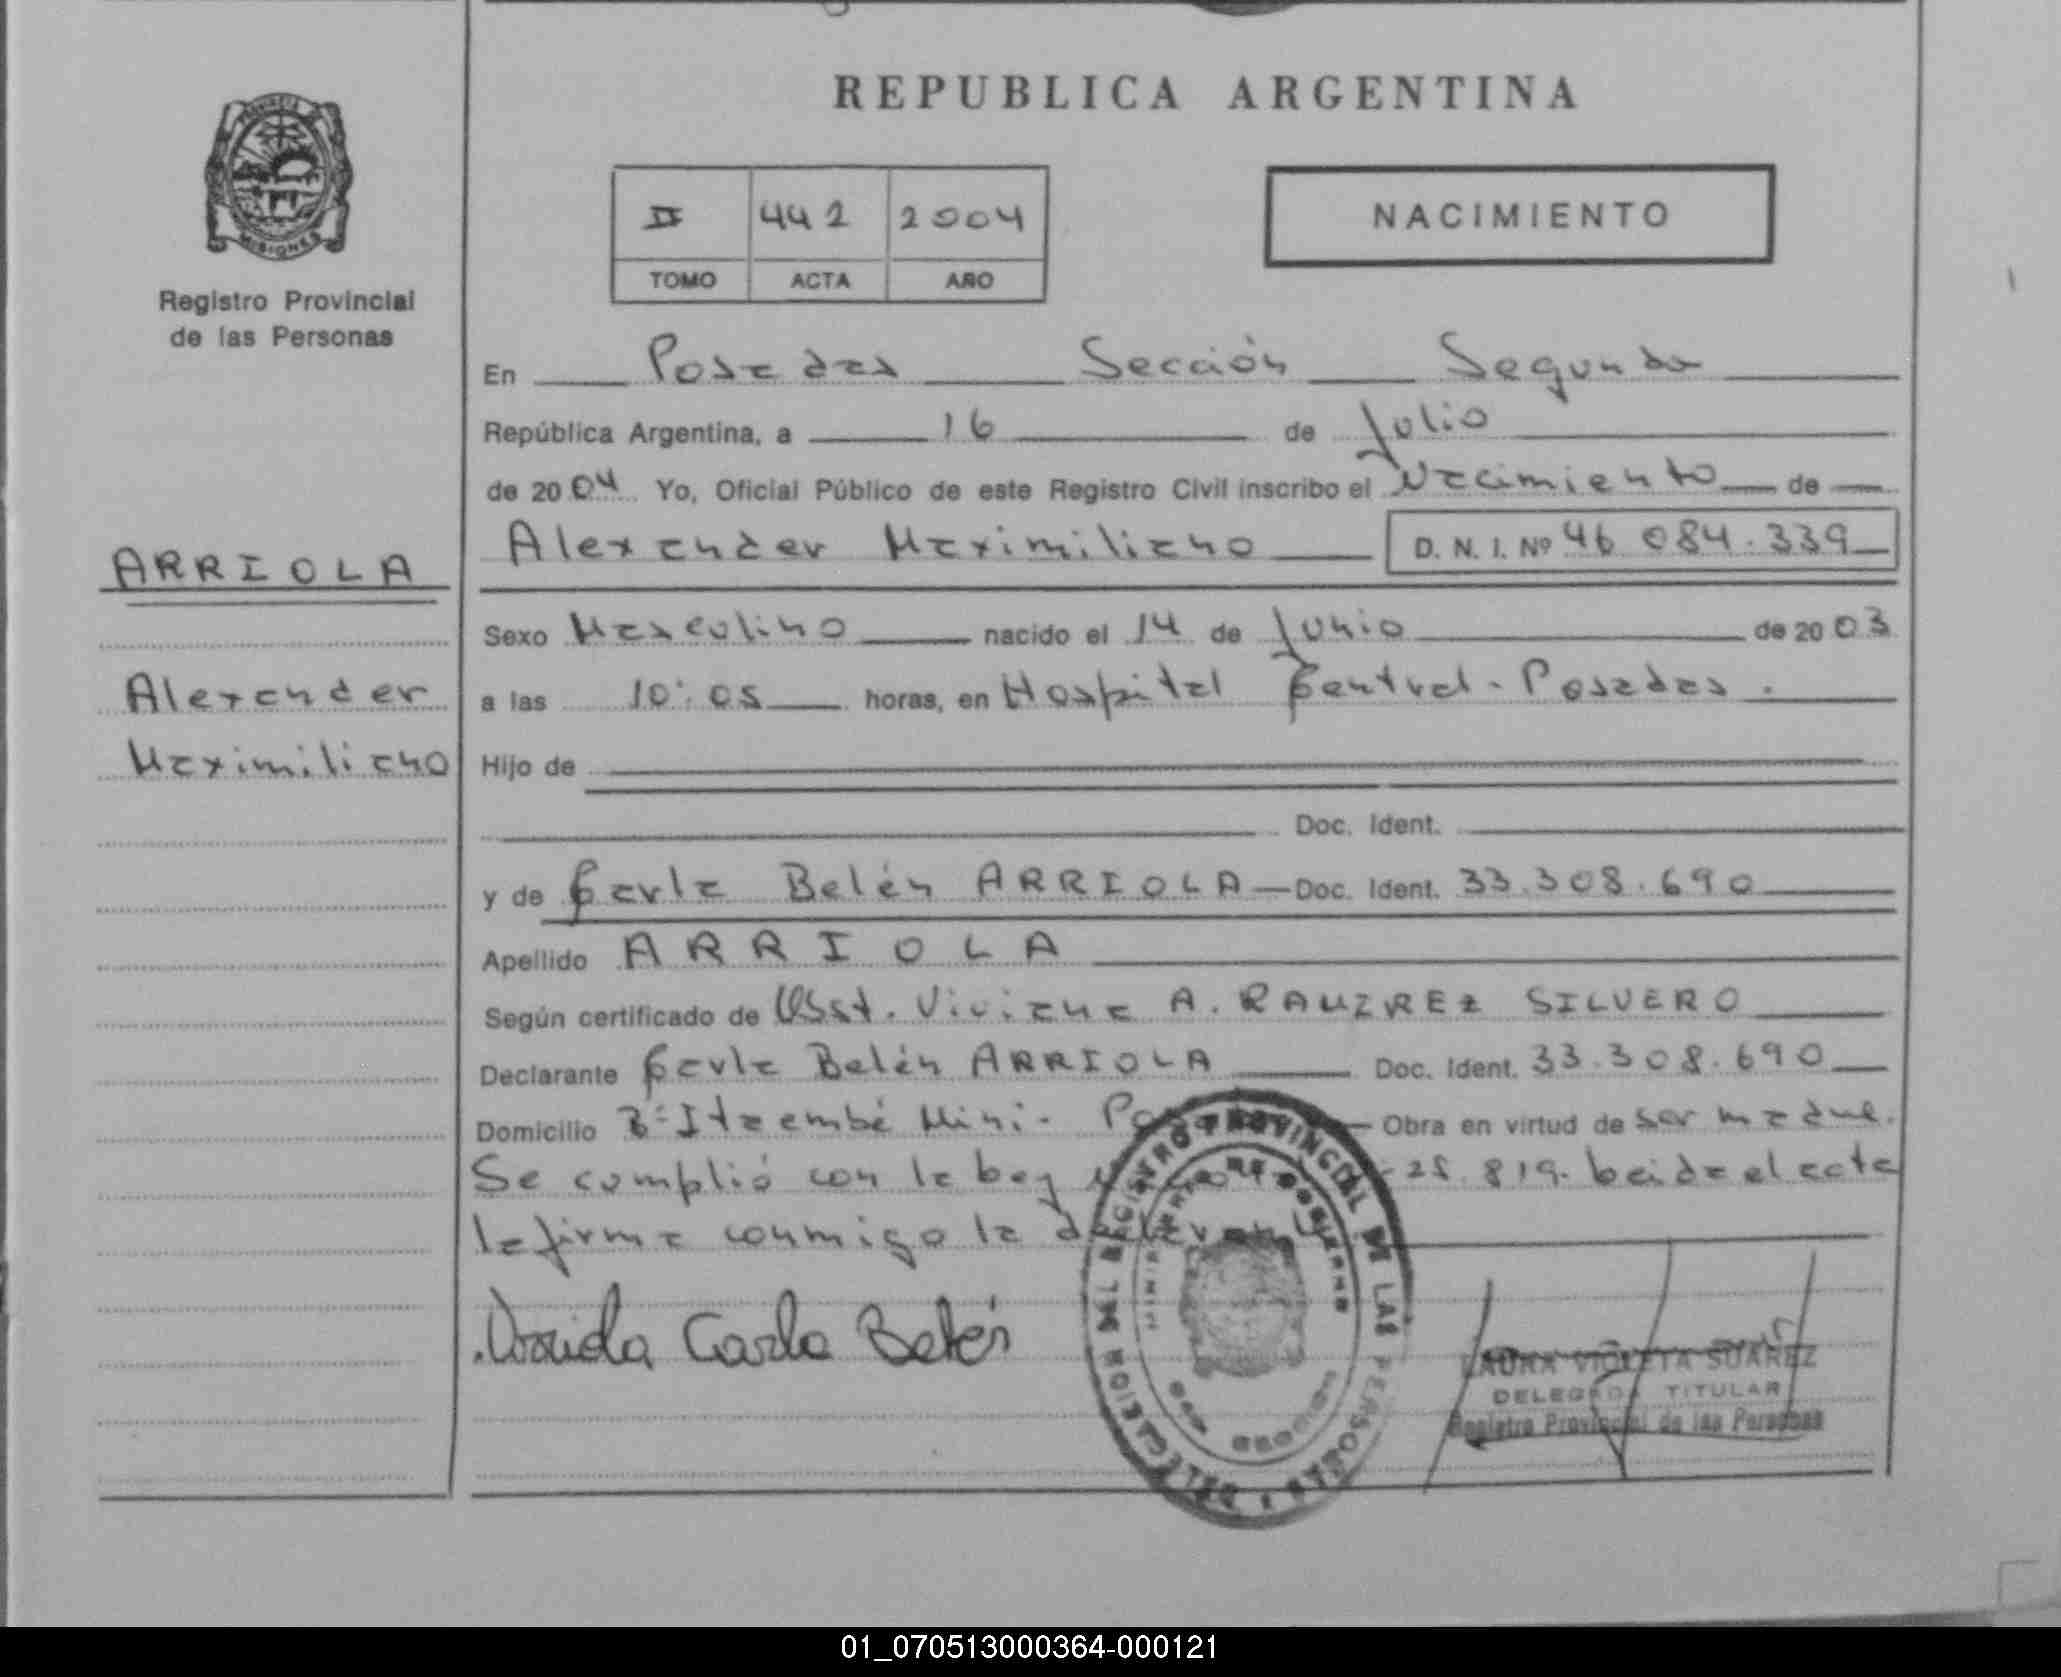 REPUBLICA ARGENTINA
PROVINCIA
MISIONES
Registro Provincial
de las Personas
II 442 2004
TOMO ACTA AÑO
NACIMIENTO
En Posadas Sección Segunda
República Argentina, a 16 de Julio
de 2004 Yo, Oficial Público de este Registro Civil inscribo el Nacimiento de
Alexander Maximiliano D. N. I. Nº 46 084.339
ARRIOLA
Alexander
Maximiliano
Sexo Masculino nacido el 14 de Junio de 2003
a las 10:05 horas, en Hospital Central - Posadas.
Hijo de
Doc. Ident.
y de Carla Belén ARRIOLA Doc. Ident. 33.308.690
Apellido ARRIOLA
Según certificado de Obst. Viviana A. RAMIREZ SILVERO
Declarante Carla Belén ARRIOLA Doc. Ident. 33.308.690
Domicilio Bº Itaembé Mini - Obra en virtud de ser madre.
Se cumplió con la Ley 25.819. Leida el acta
la firma conmigo la
Arriola Carla Belén
REGISTRO PROVINCIAL DE LAS PERSONAS
LAURA VIOLETA SUAREZ
DELEGADA TITULAR
Registro Provincial de las Personas
01_070513000364-000121